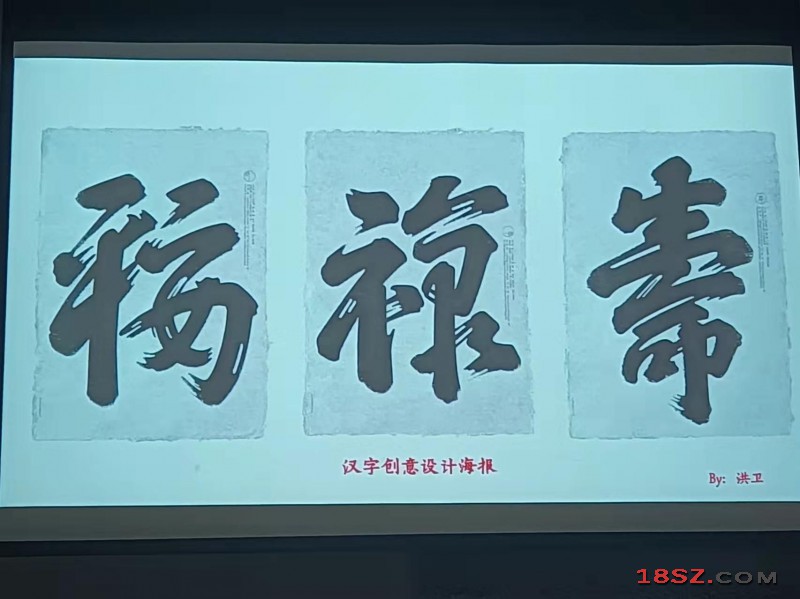 福 禄 寿
汉字创意设计海报
By: 洪卫
18SZ.COM